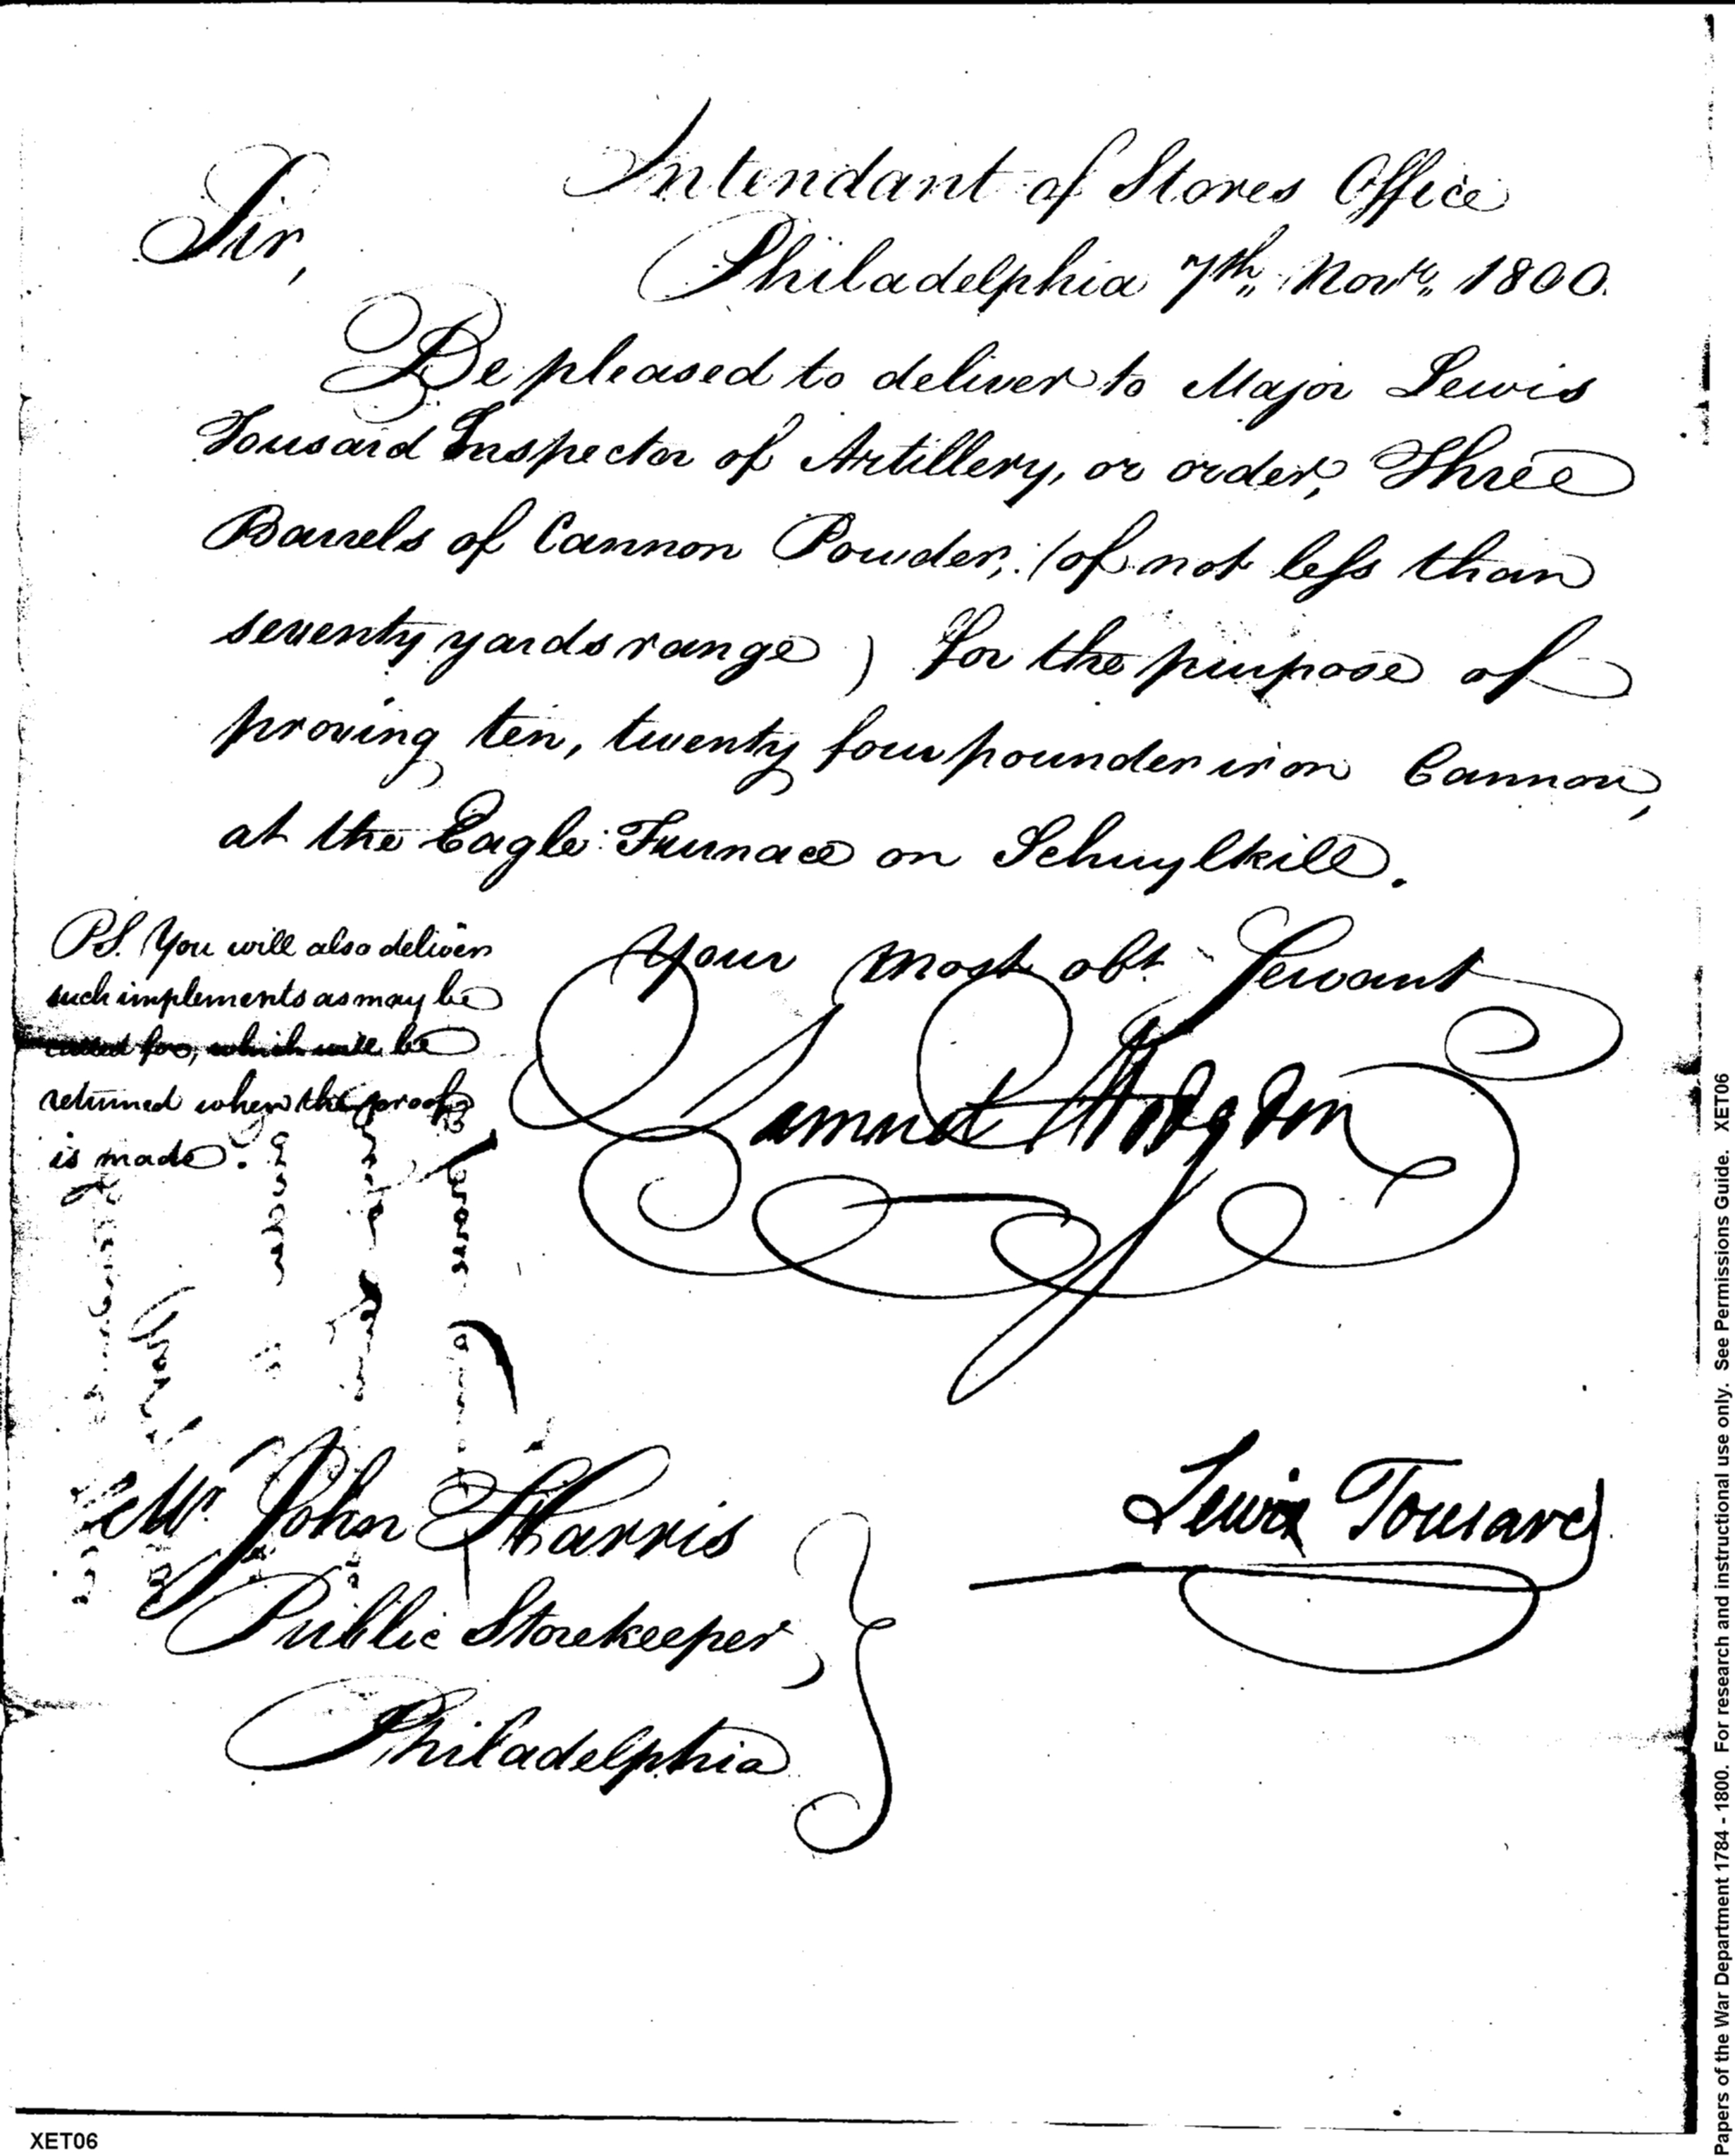 Intendant of Stores Office
Sir,
Philadelphia 7th Novr. 1800.
Be pleased to deliver to Major Lewis
Tousard Inspector of Artillery, or order, Three
Barrels of Cannon Powder, (of not less than
seventy yards range) for the purpose of
proving ten, twenty four pounder iron Cannon,
at the Eagle Furnace on Schuylkill.
Your most obt. Servant
Samuel Hodgdon
PS. You will also deliver
such implements as may be
called for, which will be
returned when the proof
is made.
Lewis Tousard
Mr. John Harris
Public Storekeeper,
Philadelphia
XET06
Papers of the War Department 1784 - 1800. For research and instructional use only. See Permissions Guide. XET06